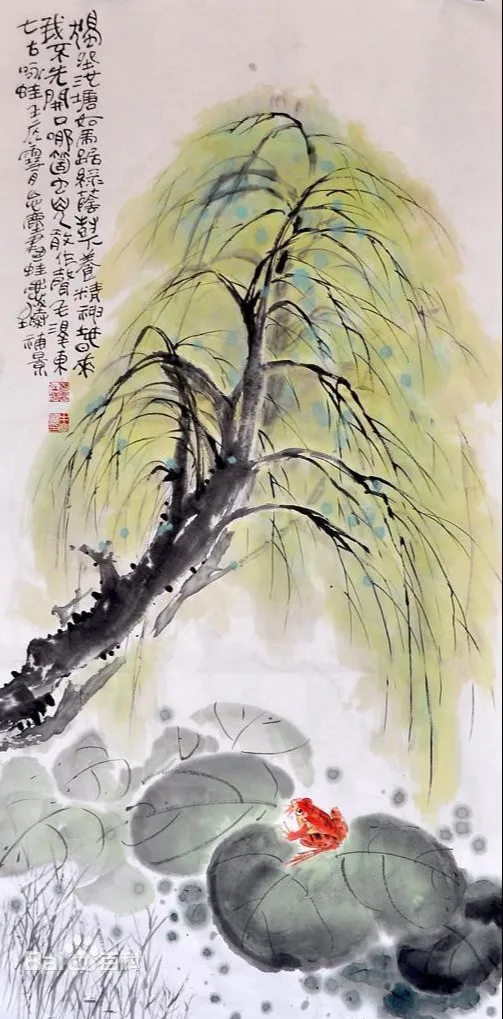 獨坐池塘如虎踞綠蔭樹下養精神春來
我不先開口哪箇虫兒敢作聲毛澤東
七古咏蛙壬辰雪月畫蛙補景
Bai百科